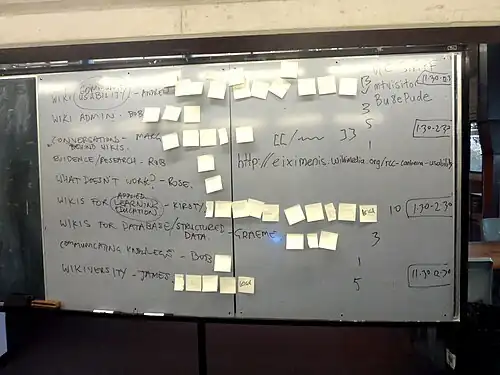 COMMUNITY
WIKI (USABILITY) - ANDREW 13 11:30-
mtvisitor
WIKI ADMIN - BOB 3 Bu9ePude
CONVERSATIONS - MARK 5 1:30-2:30
BEYOND WIKIS. [[/ ]] 1
EVIDENCE/RESEARCH - ROB http://eiximenis.wikimedia.org/rcc-canberra-usability
WHAT DOESN'T WORK? - ROSE.
APPLIED
WIKIS FOR LEARNING - KIRSTY 10 1:30-2:30
EDUCATION
WIKIS FOR DATABASE/STRUCTURED
DATA - GRAEME 3
COMMUNICATING KNOWLEDGE - BOB 1
WIKIVERSITY - JAMES 5 11:30-2:30